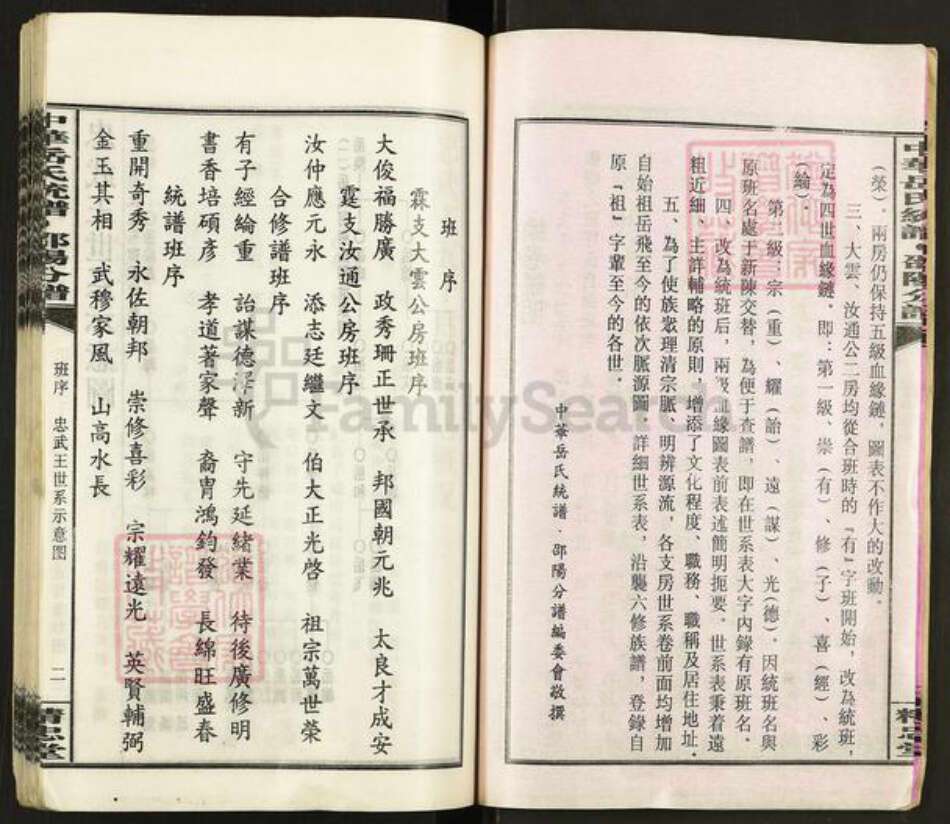 (榮)．兩房仍保持五級血緣鏈，圖表不作大的改動．
三、大雲、汝通公二房均從合班時的『有』字班開始，改為統班，
定為四世血緣鏈．即：第一級、崇(有)、修(子)、喜(經)、彩
(綸)．
第二級：宗(重)、耀(詒)、遠(謀)、光(德)．因統班名與
原班名處于新陳交替，為便于查譜，即在世系表大字內錄有原班名．
四、改為統班后，兩級血緣圖表前表述簡明扼要．世系表秉着遠
粗近細、主詳輔略的原則，增添了文化程度、職務、職稱及居住地址．
五、為了使族眾理清宗脈，明辨源流，各支房世系卷前面均增加
自始祖岳飛至今的依次脈源圖，詳細世系表，沿襲六修族譜，登錄自
原『祖』字輩至今的各世．
中華岳氏統譜．邵陽分譜編委會敬撰
中華岳氏統譜·邵陽分譜
精忠堂
班序
霖支大雲公房班序
大俊福勝廣 政秀珊正世承 邦國朝元兆 太良才成安
霆支汝通公房班序
汝仲應元永 添志廷繼文 伯大正光啓 祖宗萬世榮
合修譜班序
有子經綸重 詒謀德澤新 守先延緒業 待後廣修明
書香培碩彥 孝道著家聲 裔冑鴻鈞發 長綿旺盛春
統譜班序
重開奇秀 永佐朝邦 崇修喜彩 宗耀遠光 英賢輔弼
金玉其相 武穆家風 山高水長
中華岳氏統譜·邵陽分譜
班序 忠武王世系示意图
二
精忠堂
FamilySearch